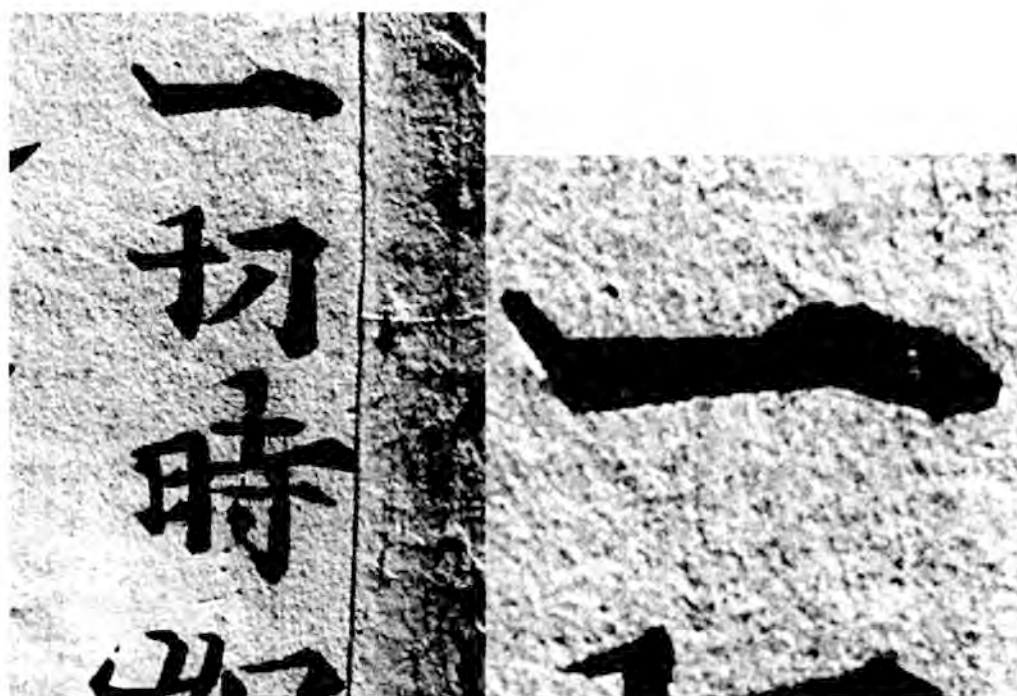 一切時
一